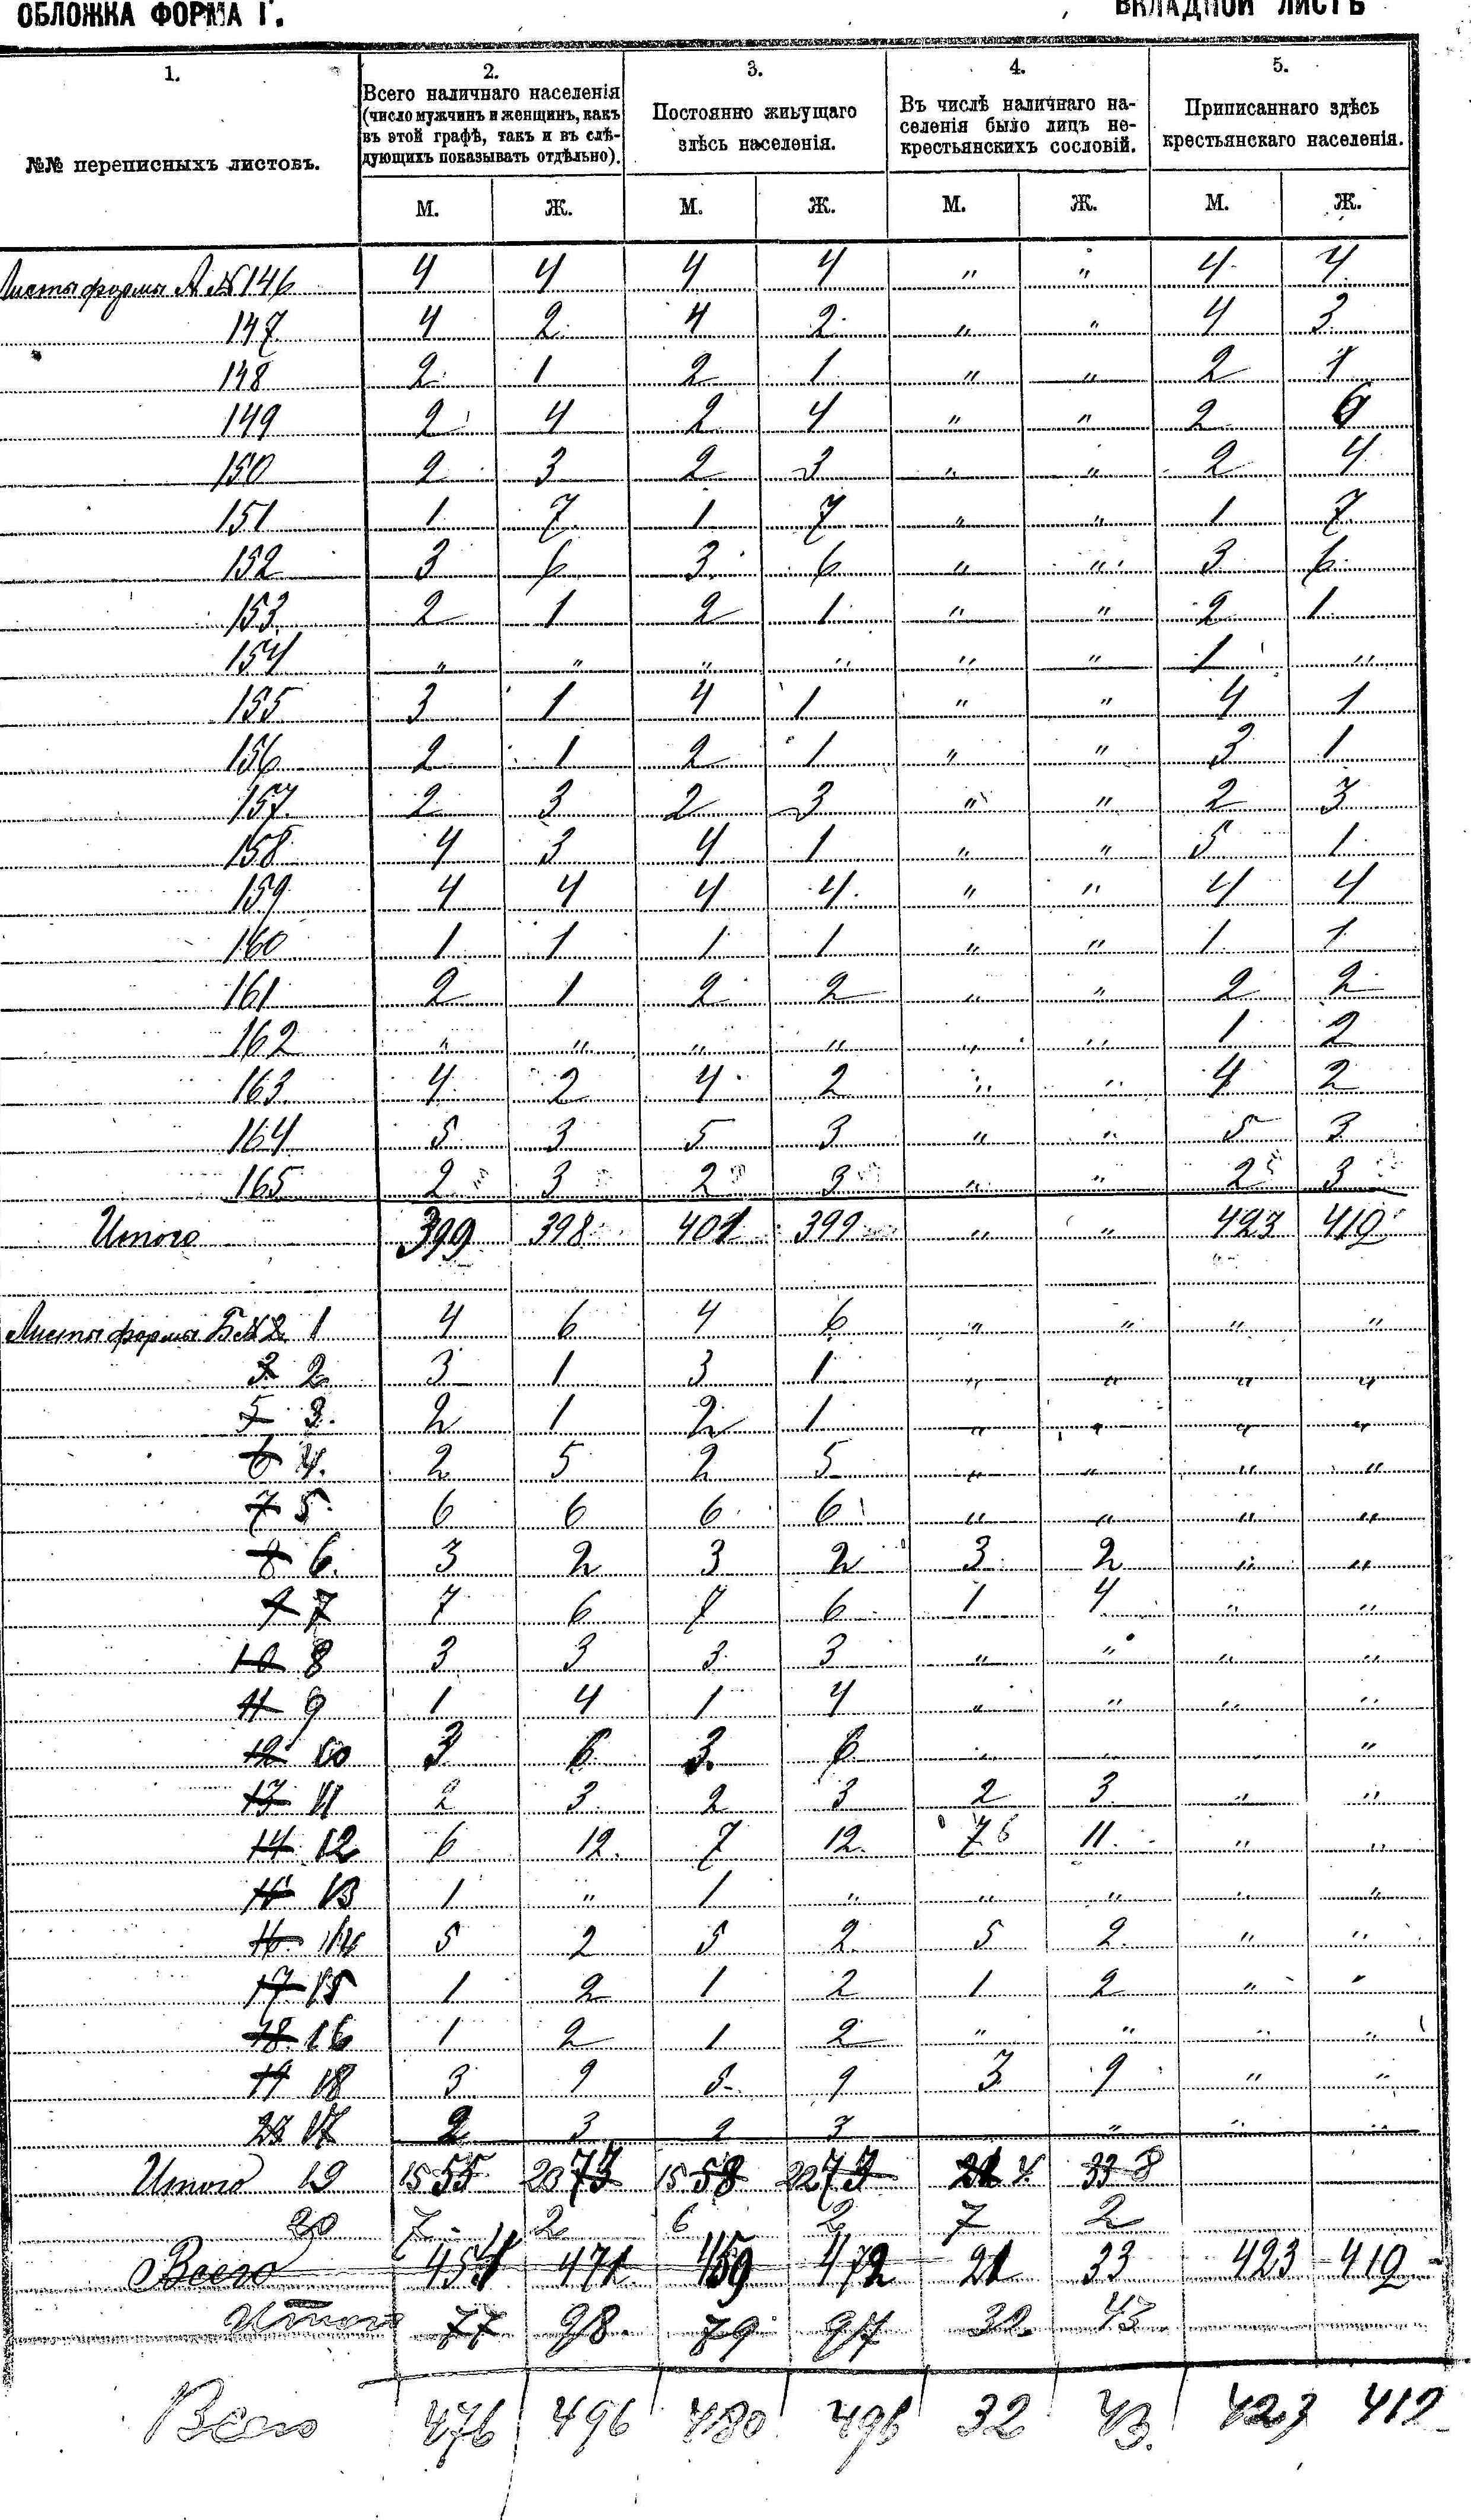 ОБЛОЖКА ФОРМА Г. ВКЛАДНОЙ ЛИСТЪ
1. 2. 3. 4. 5.
№№ переписныхъ листовъ.
Всего наличнаго населенія
(число мужчинъ и женщинъ, какъ
въ этой графѣ, такъ и въ слѣ-
дующихъ показывать отдѣльно).
Постоянно живущаго
здѣсь населенія.
Въ числѣ наличнаго на-
селенія было лицъ не-
крестьянскихъ сословій.
Приписаннаго здѣсь
крестьянскаго населенія.
М. Ж. М. Ж. М. Ж. М. Ж.
Листы формы А № 146 4 4 4 4 " " 4 4
147 4 2 4 2 " " 4 3
148 2 1 2 1 " " 2 1
149 2 4 2 4 " " 2 6
150 2 3 2 3 " " 2 4
151 1 7 1 7 " " 1 7
152 3 6 3 6 " " 3 6
153 2 1 2 1 " " 2 1
154 " " " " " " 1 "
155 3 1 4 1 " " 4 1
156 2 1 2 1 " " 3 1
157 2 3 2 3 " " 2 3
158 4 3 4 1 " " 5 1
159 4 4 4 4 " " 4 4
160 1 1 1 1 " " 1 1
161 2 1 2 2 " " 2 2
162 " " " " " " 1 2
163 4 2 4 2 " " 4 2
164 5 3 5 3 " " 5 3
165 2 3 2 3 " " 2 3
Итого 399 398 401 399 " " 423 419
Листы формы Б № 2 1 4 6 4 6 " " " "
3 2 3 1 3 1 " " " "
5 3. 2 1 2 1 " " " "
6 4. 2 5 2 5 " " " "
7 5. 6 6 6 6 " " " "
8 6. 3 2 3 2 3 2 " "
9 7 7 6 7 6 1 4 " "
10 8 3 3 3 3 " " " "
11 9 1 4 1 4 " " " "
12 10 3 6 3 6 " " "
13 11 2 3 2 3 2 3 " "
14 12 6 12 7 12 7 6 11 " "
13 1 " 1 " " " " "
16 14 5 2 5 2 5 2 " "
17 15 1 2 1 2 1 2 " "
18 16 1 2 1 2 " " " "
19 18 3 9 5 9 3 9 " "
17 2 3 2 3 " " "
Итого 19 15 55 20 73 15 58 22 73 21 33 8
20 7 2 6 2 7 2
Всего 454 471 459 472 21 33 423 419
Итого 77 98 79 97 32 43
Всего 476 496 480 496 32 43. 423 419